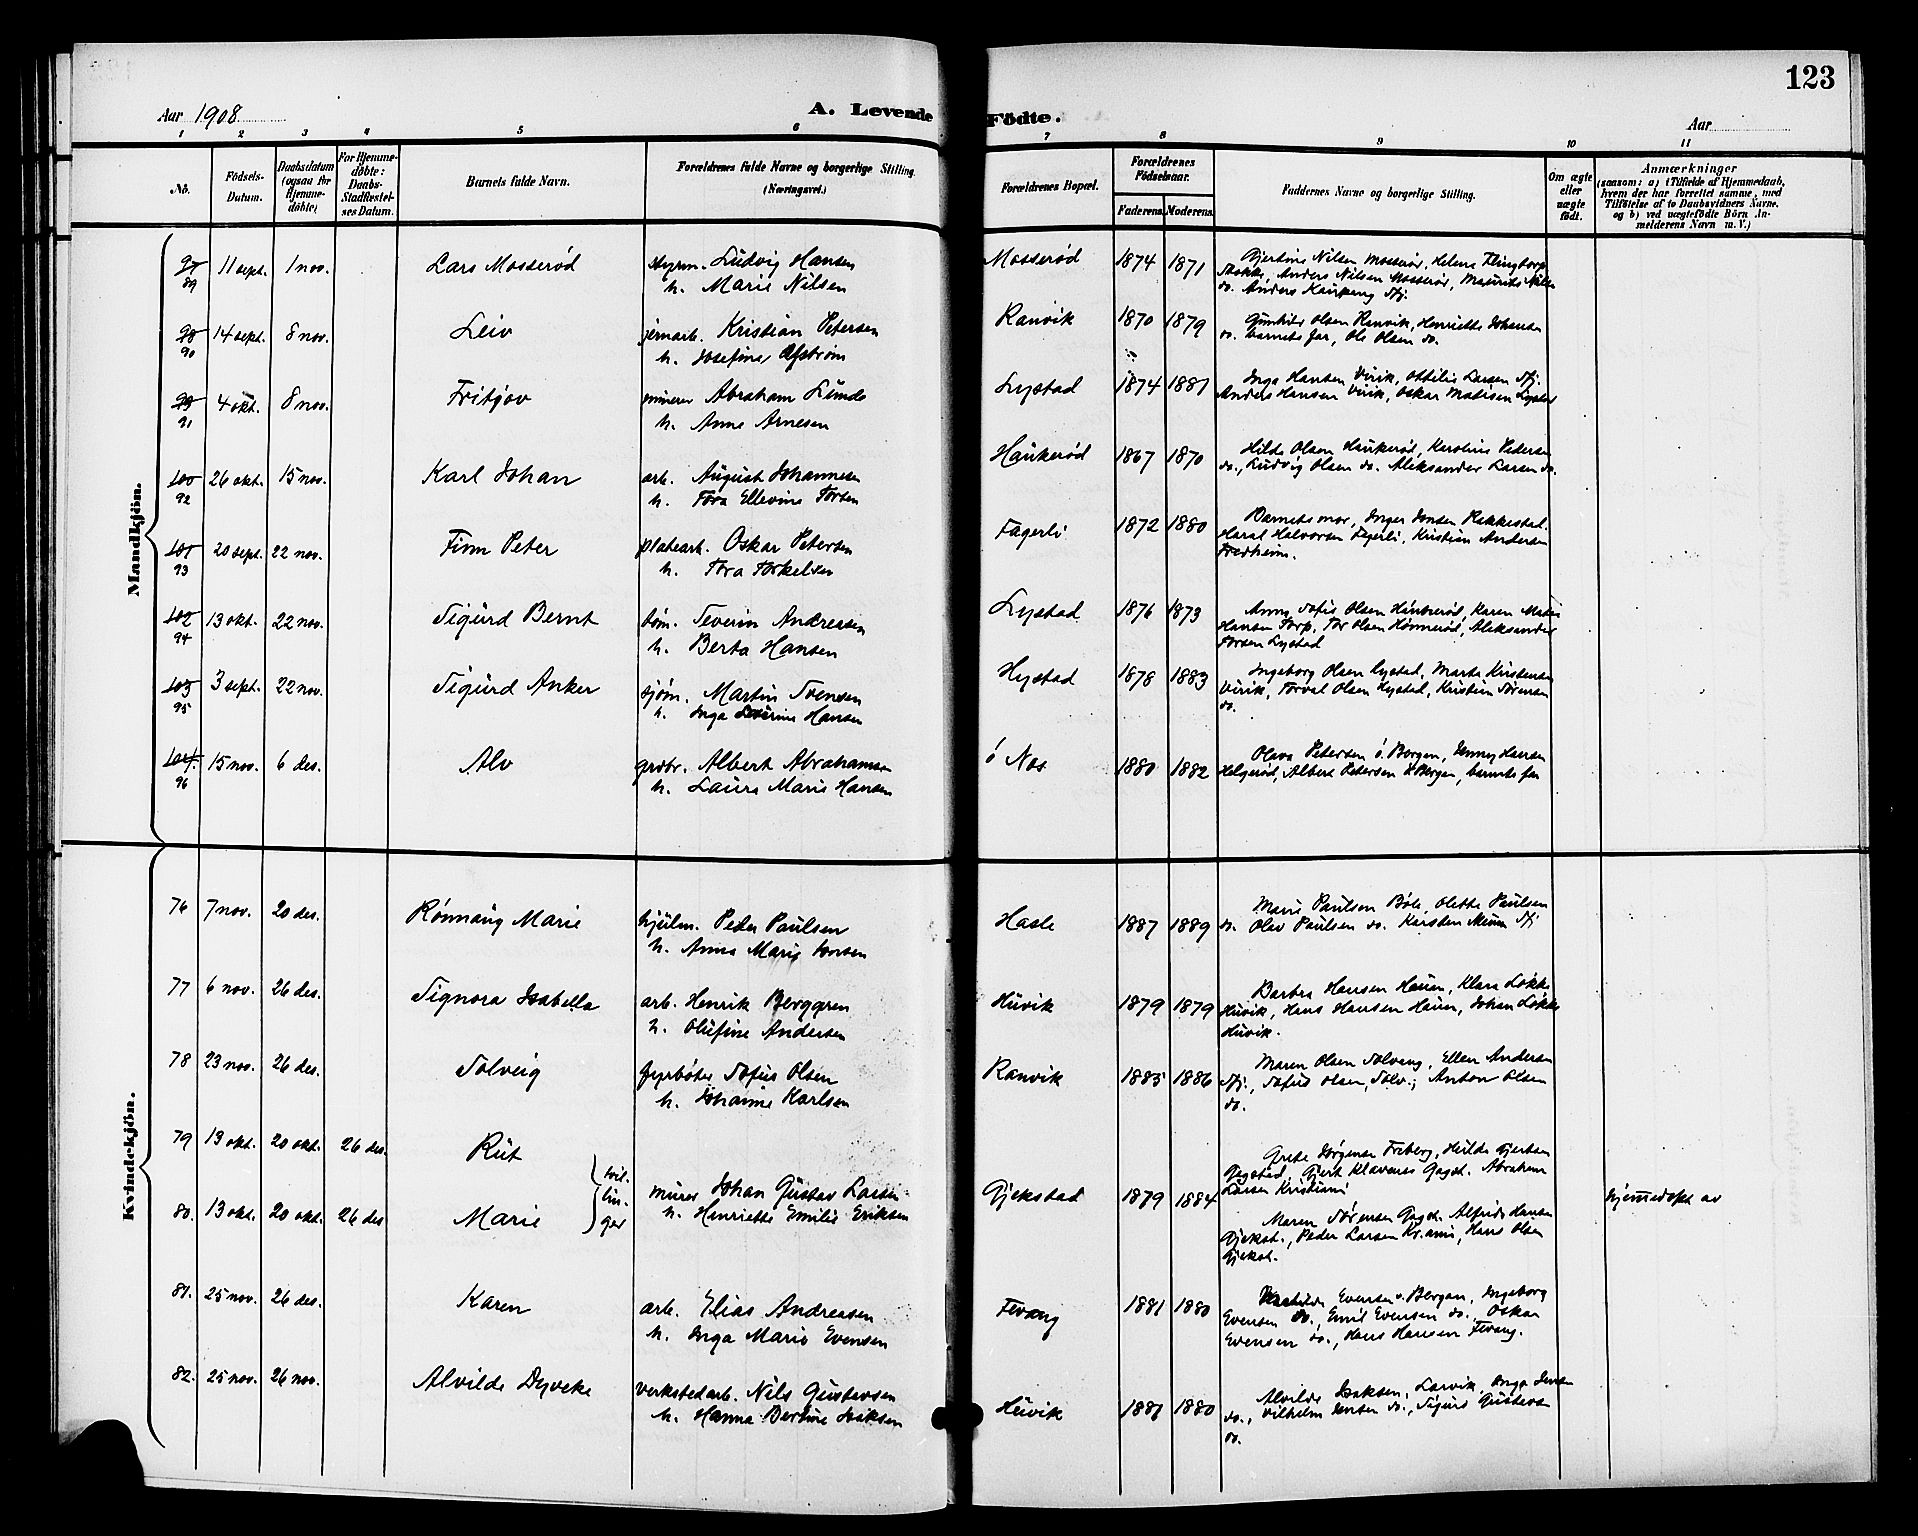 123
Aar 1908
A. Levende Födte.
Aar
1 2 3 4 5 6 7 8 9 10 11
No.
Födsels-Datum.
Daabsdatum (ogsaa for Hjemmedöbte)
For Hjemmedöbte: Daabs-Stadfæstelses Datum.
Barnets fulde Navn.
Forældrenes fulde Navne og borgerlige Stilling. (Næringsvei.)
Forældrenes Bopæl.
Forældrenes Födselsaar.
Faderens Moderens
Faddernes Navne og borgerlige Stilling.
Om ægte eller uægte födt.
Anmærkninger
(saasom: a) i Tilfælde af Hjemmedaab, hvem der har forrettet samme, med Tilföielse af to Daabsvidners Navne. og b) ved uægtefödte Börn Anmelderens Navn m. V.)
Mandkjön.
97 11 sept. 1 nov. Lars Mosserød styrm. Ludvig Hansen Mosserød 1874 1871 Gjertine Nilsen Mosserød, Helene
89 h. Marie Nilsen Stokke, Anders Nilsen Mosserød, Maurits Nilsen
do. Anders Kaupang Sfj.
98 14 sept. 8 nov. Leiv jernarb. Kristian Petersen Ranvik 1870 1879 Gunhild Olsen Ranvik, Henriette Johansen
90 h. Josefine Ofstrøm do. barnets far, Ole Olsen do.
99 4 okt. 8 nov. Fritjov minerer Abraham Lunde Lystad 1874 1881 Inga Hansen Virik, Ottilie Larsen Sfj.
91 h. Anna Arnesen Anders Hansen Virik, Oskar Matisen Lystad
100 26 okt. 15 nov. Karl Johan arb. August Johannesen Haukerød 1867 1870 Hilda Olsen Haukerød, Karoline Pedersen
92 h. Tora Ellevine Torsen do., Ludvig Olsen do. Aleksander Larsen do.
101 20 sept. 22 nov. Finn Peter platearb. Oskar Petersen Fagerli 1872 1880 Barnets mor, Inger Jensen Rakkestad.
93 h. Tora Torkelsen Haral Halvorsen Fagerli, Kristian Andersen
Fredheim.
102 13 okt. 22 nov. Sigurd Bernt tøm. Severin Andreasen Lystad 1876 1873 Anna Sofie Olsen Haukerød, Karen Marie
94 h. Berta Hansen Hansen Torp, Tor Olsen Hønnerød, Aleksander
Torsen Lystad
103 3 sept. 22 nov. Sigurd Anker sjøm. Martin Svensen Hystad 1878 1883 Ingeborg Olsen Lystad, Marta Kristensen
95 h. Inga Severine Hansen Virik, Torval Olsen Hystad, Kristian Sørensen
do.
104. 15 nov. 6 des. Alv grdbr. Albert Abrahamsen ö Nes 1880 1882 Olava Petersen ö. Borgen, Jenny Hansen
96 h. Laura Marie Hansen Helgerød, Albert Petersen ö Borgen, barnets far
Kvindekjön.
76 7 nov. 20 des. Rönnaug Marie hjulm. Peder Paulsen Hasle 1887 1889 Marie Paulsen Bøle, Olette Paulsen
h. Anna Marie do. Olav Paulsen do. Karsten Sfj
77 6 nov. 26 des. Signora Isabella arb. Henrik Berggren Huvik 1879 1879 Barbra Hansen Haum, Klara Løkke
h. Olufine Andersen Huvik, Hans Hansen Haum, Johan Løkke
Huvik.
78 23 nov. 26 des. Solveig fyrbøter Sofus Olsen Ranvik 1885 1886 Maren Olsen Solvang, Ellen Andersen
h. Johanne Karlsen Sfj., Sofus Olsen, Solv.; Anton Olsen
do.
79 13 okt. 20 okt. 26 des. Rut tvillinger murer Johan Gustav Larsen Gjekstad 1879 1884 Grete Jørgensen Freberg, Hilda Gjertsen
h. Henriette Emilie Eriksen Gjekstad, Gjert Klavenes Gogst. Abraham
Larsen Kristiania
80. 13 okt. 20 okt. 26 des Marie Maren Sørensen Gogst. Alfrida Hansen hjemmedøpt av
Gjekst., Peder Larsen Kr.ania, Hans Olsen
Gjekst.
81. 25 nov. 26 des. Karen arb. Elias Andreasen Fevang 1881 1880 Evensen v. Bergan, Ingeborg
h. Inga Marie Evensen Evensen do., Emil Evensen do. Oskar
Evensen do., Hans Hansen Fevang.
82. 25 nov. 26 nov. Alvilde Dyveke verkstedarb. Nils Gustavsen Huvik 1881 1880 Alvilde Isaksen, Larvik, Inga Jensen
h. Hanna Bertine Isaksen do., Vilhelm Jensen do., Sigurd Gustavsen
do.